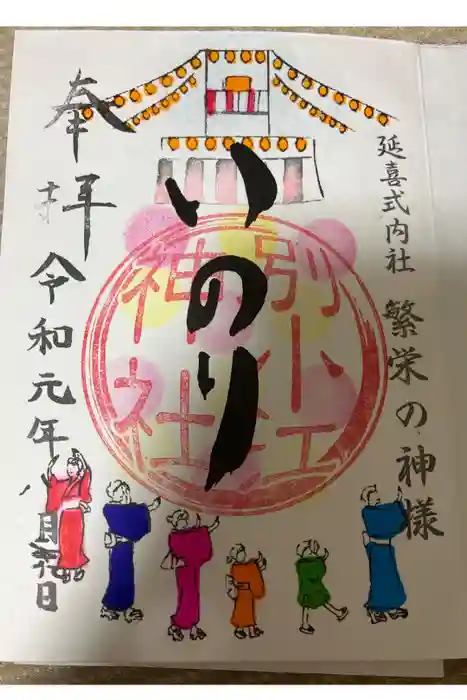 延喜式内社
繁栄の神様
いのり
別小江
神社
奉拝
令和元年八月 日